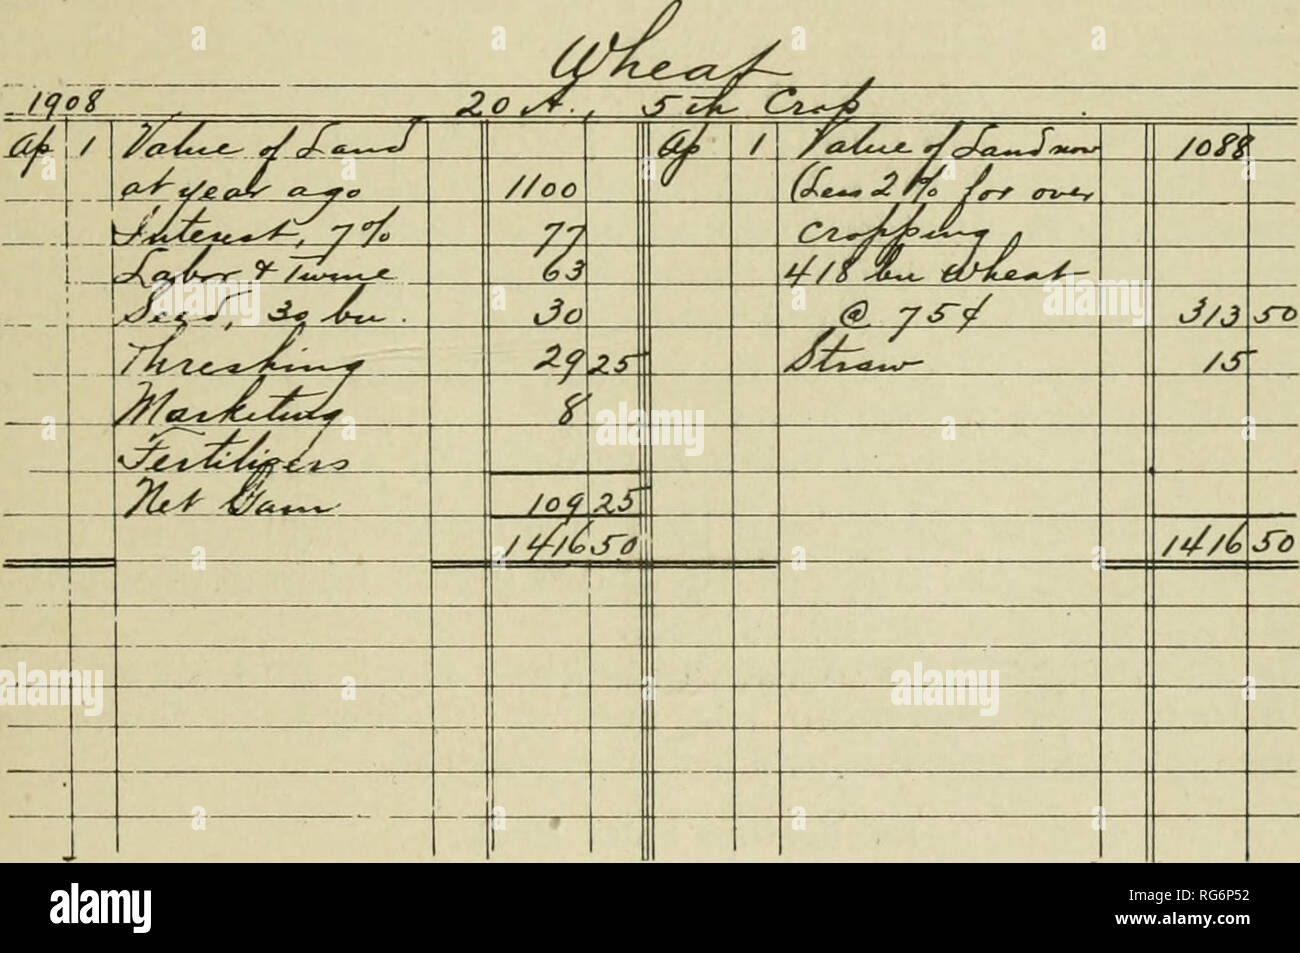 Wheat
1908 20 A., 5th Crop
Ap 1 Value of Land
at year ago 1100
Interest, 7% 77
Labor & Twine 63
Seed, 30 bu. 30
Threshing 29 25
Marketing 8
Fertilizers
Net Gain 109 25
1416 50
Ap 1 Value of Land now 1088
(Less 2% for over
cropping
418 bu Wheat
@ 75¢ 313 50
Straw 15
1416 50
alamy
a
alamy
Image ID: RG6P52
www.alamy.com